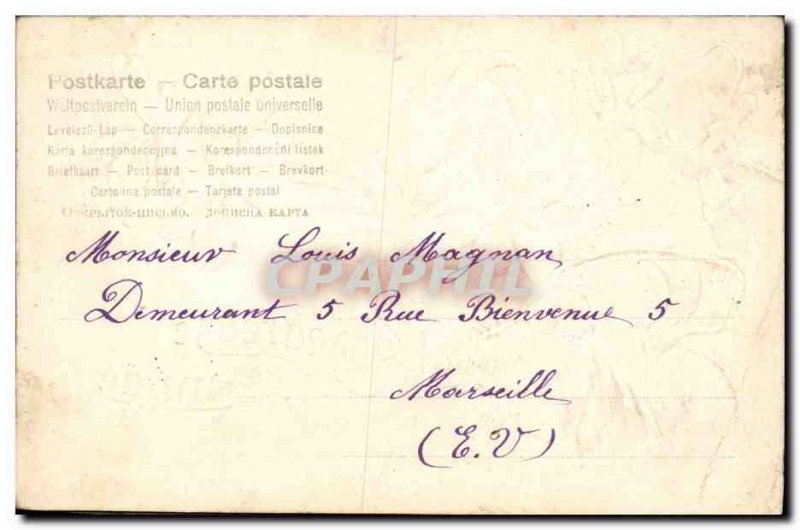 Postkarte — Carte postale
Weltpostverein — Union postale universelle
Levelező-Lap — Correspondenzkarte — Dopisnice
Karta korespondencyjna — Korespondenční lístek
Briefkaart — Post card — Brefkort — Brevkort
Cartolina postale — Tarjeta postal
Открытое-письмо. Дописна карта
Monsieur Louis Magnan
CPAPHIL
Demeurant 5 Rue Bienvenue 5
Marseille
(E.V)